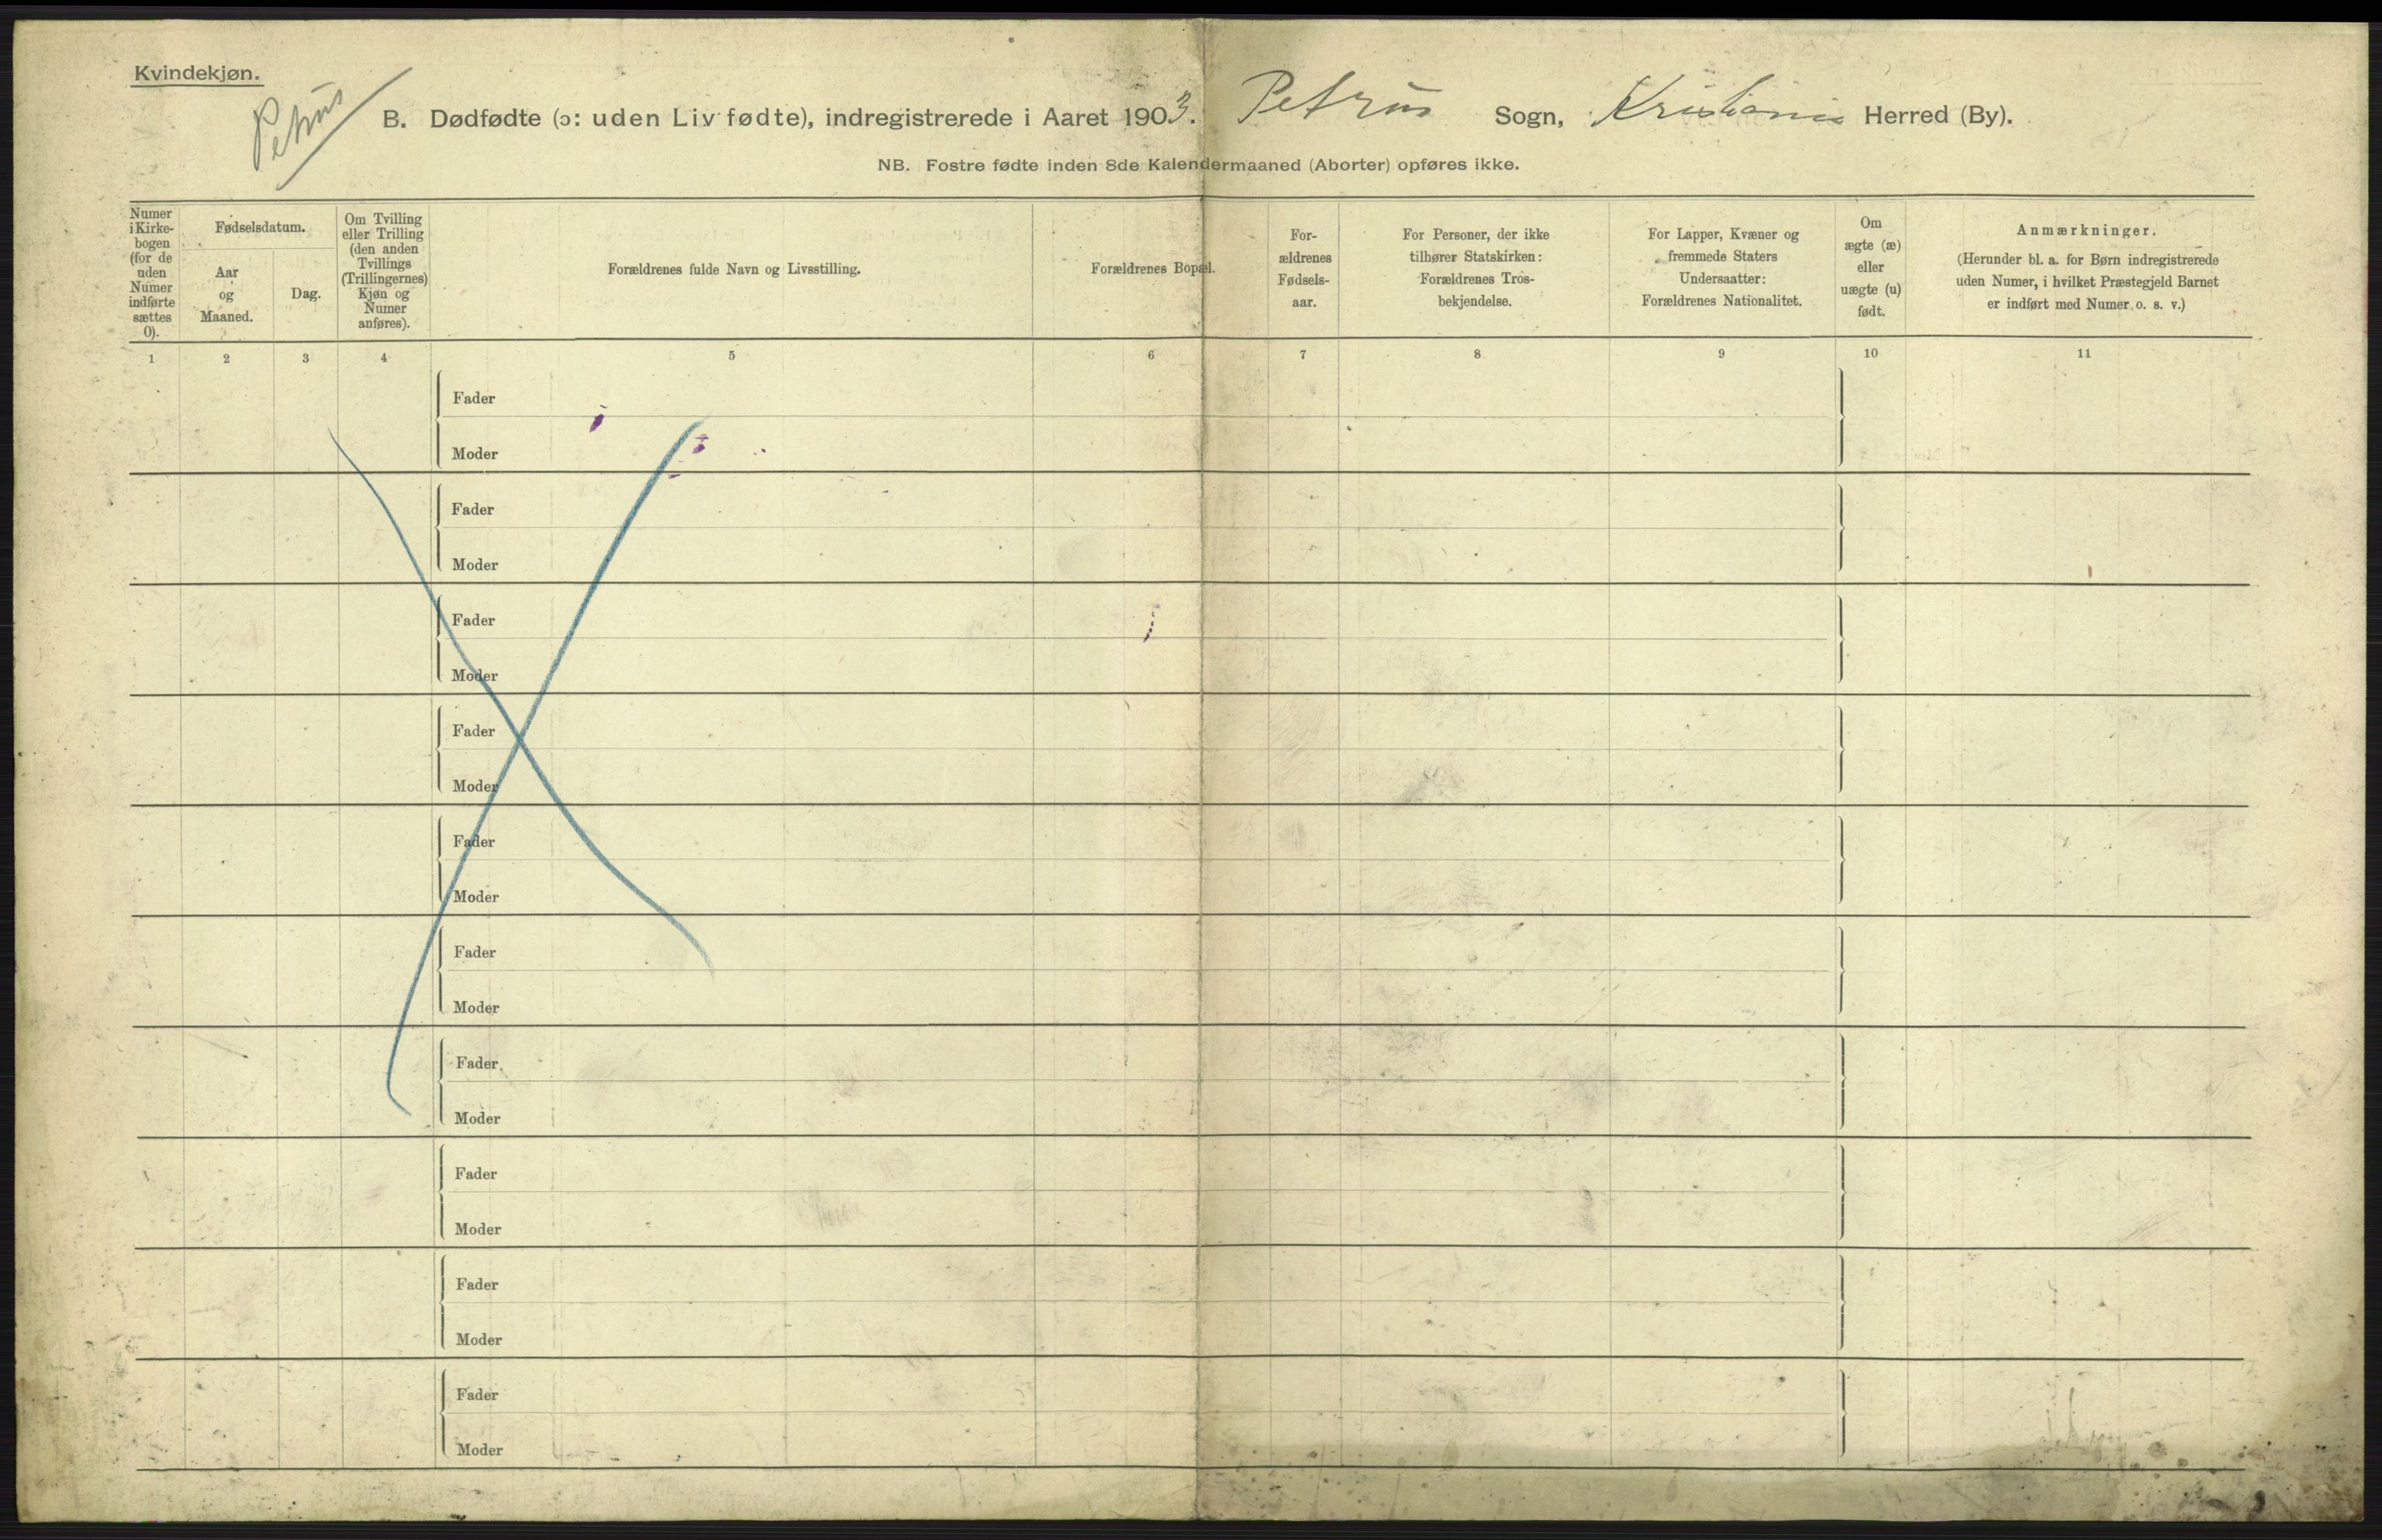 Kvindekjøn.
Petrus
B. Dødfødte (ɔ: uden Liv fødte), indregistrerede i Aaret 1903. Petrus Sogn, Kristiania Herred (By).
NB. Fostre fødte inden 8de Kalendermaaned (Aborter) opføres ikke.
Numer
i Kirke-
bogen
(for de
uden
Numer
indførte
sættes
0).
Fødselsdatum.
Aar
og
Maaned.
Dag.
Om Tvilling
eller Trilling
(den anden
Tvillings
(Trillingernes)
Kjøn og
Numer
anføres).
Forældrenes fulde Navn og Livsstilling.
Forældrenes Bopæl.
For-
ældrenes
Fødsels-
aar.
For Personer, der ikke
tilhører Statskirken:
Forældrenes Tros-
bekjendelse.
For Lapper, Kvæner og
fremmede Staters
Undersaatter:
Forældrenes Nationalitet.
Om
ægte (æ)
eller
uægte (u)
født.
Anmærkninger.
(Herunder bl. a. for Børn indregistrerede
uden Numer, i hvilket Præstegjeld Barnet
er indført med Numer o. s. v.)
1 2 3 4 5 6 7 8 9 10 11
Fader
Moder
Fader
Moder
Fader
Moder
Fader
Moder
Fader
Moder
Fader
Moder
Fader
Moder
Fader
Moder
Fader
Moder
Fader
Moder